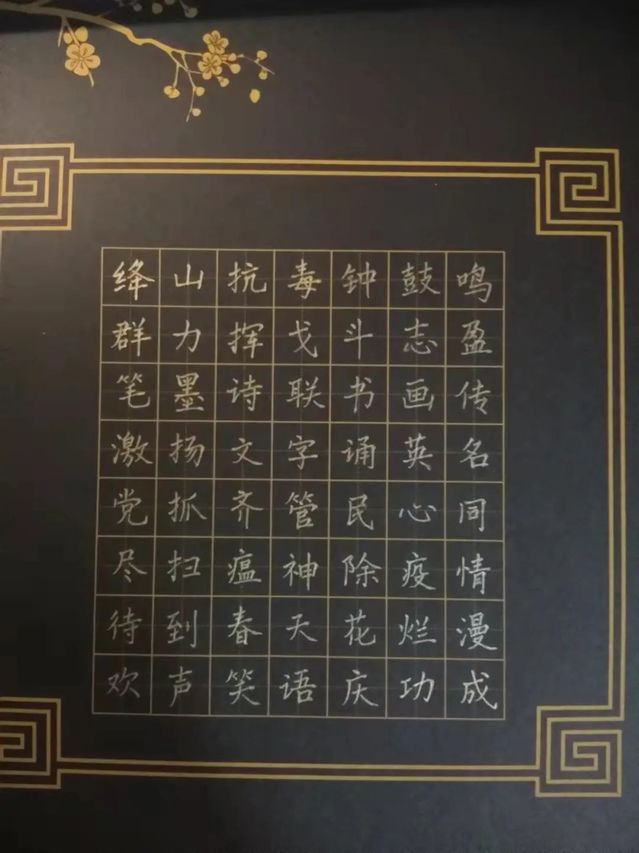 绛山抗毒钟鼓鸣
群力挥戈斗志盈
笔墨诗联书画传
激扬文字诵英名
党抓齐管民心同
尽扫瘟神除疫情
待到春天花烂漫
欢声笑语庆功成